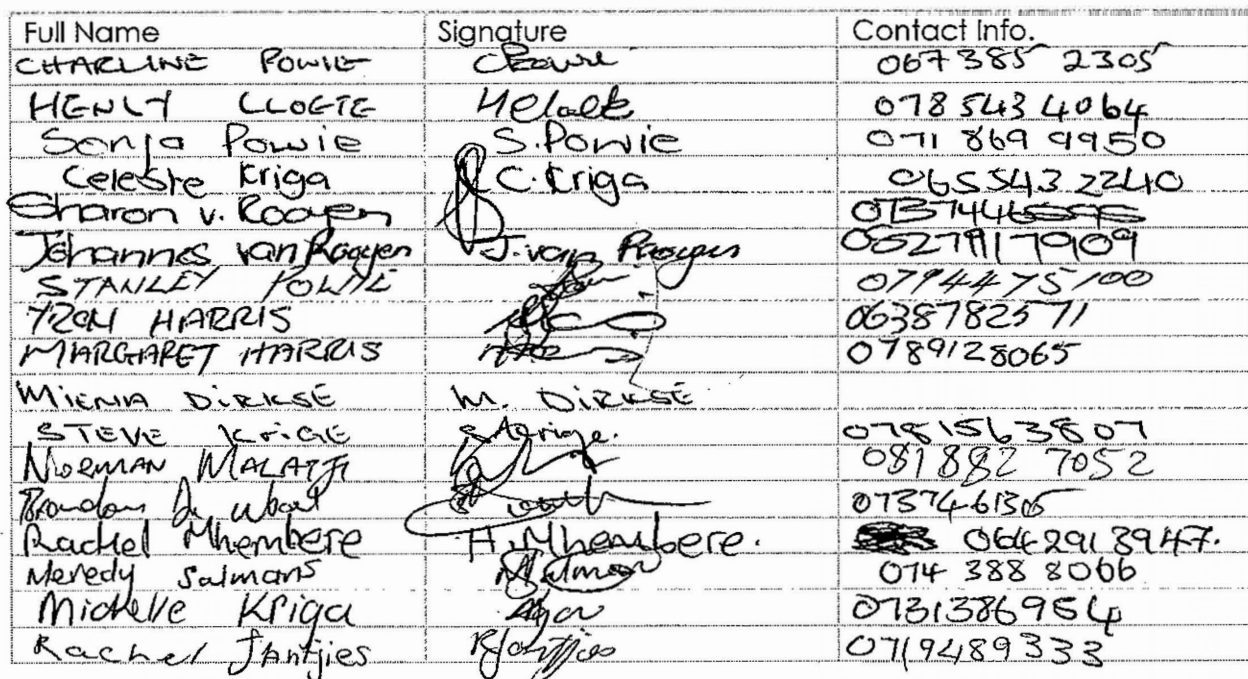 Full Name Signature Contact Info.
CHARLINE POWIE 067 385 2305
HENLY CLOETE 078 543 4064
Sonja Powie S. Powie 071 869 9950
Celeste Kriga C. Kriga 065 543 2240
Sharon v. Rooyen
Johannes van Rooyen J. van Rooyen
STANLEY POWIE 0794475100
HARRIS 0638782571
MARGARET HARRIS 0789128065
MIENIA DIRKSE M. DIRKSE
STEVE KriGE S Krige. 0781563807
NORMAN MALATJI 081 882 7052
Rachel Mhembere H. Mhembere. 064 291 3947.
Meredy Salmans 074 388 8066
Michelle Kriga 0731386954
Rachel Jantjies R Jantjies 0719489333